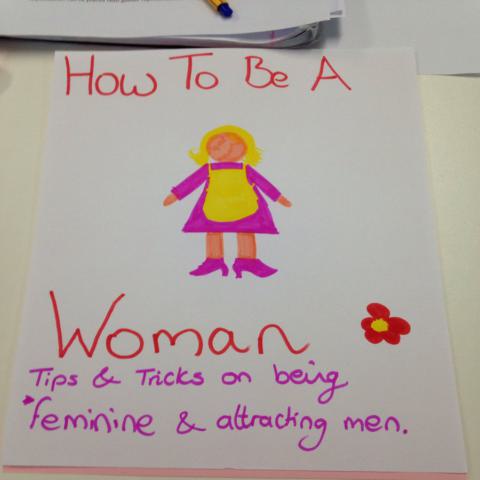 How To Be A
Woman
Tips & Tricks on being
feminine & attracting men.